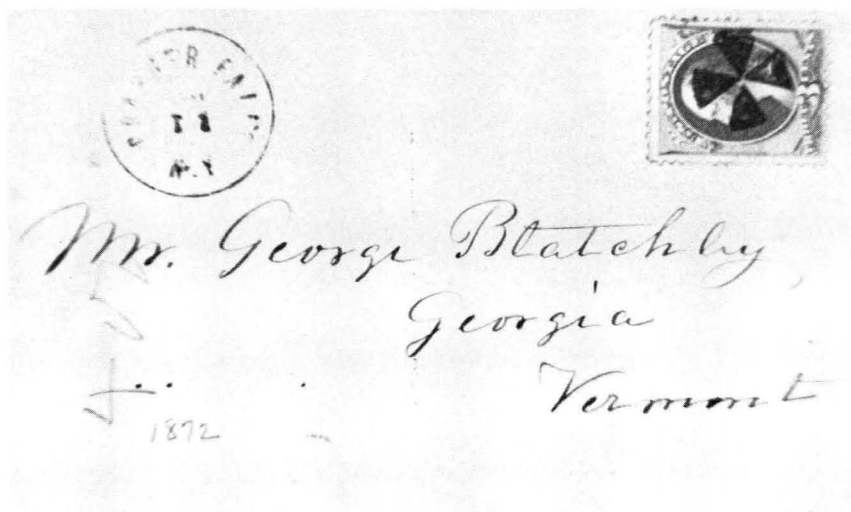 N.Y
Mr. George Blatchley
Georgia
Vermont
1872